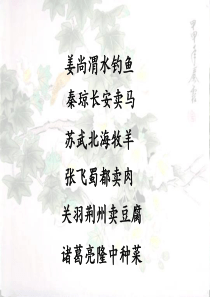 姜尚渭水钓鱼
秦琼长安卖马
苏武北海牧羊
张飞蜀都卖肉
关羽荆州卖豆腐
诸葛亮隆中种菜